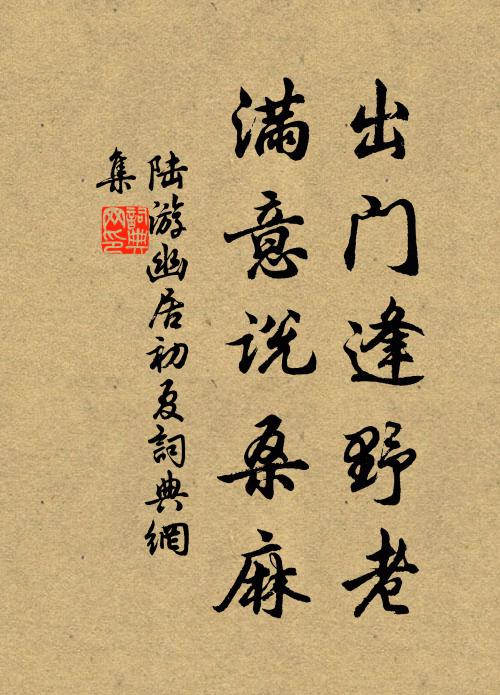 出门逢野老
满意说桑麻
陆游幽居初夏詞典網
集
詞典
网印